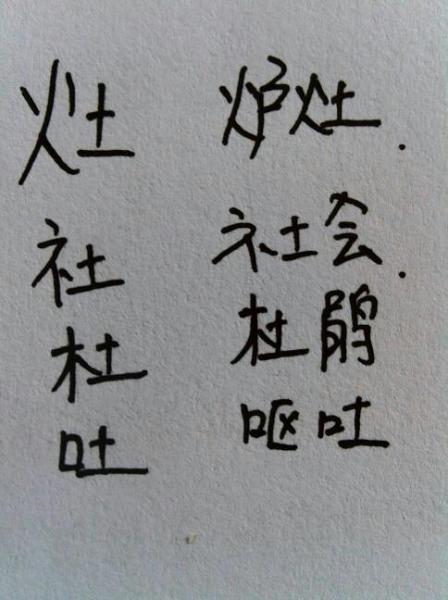 灶 炉灶.
社 社会.
杜 杜鹃
吐 呕吐